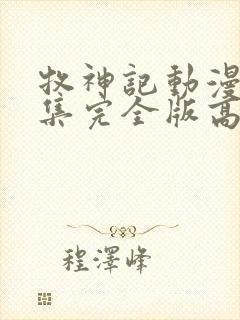 牧神記動漫
集完全版高
程澤峰